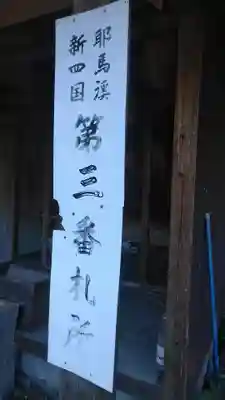 耶馬溪
新四国
第三番札所